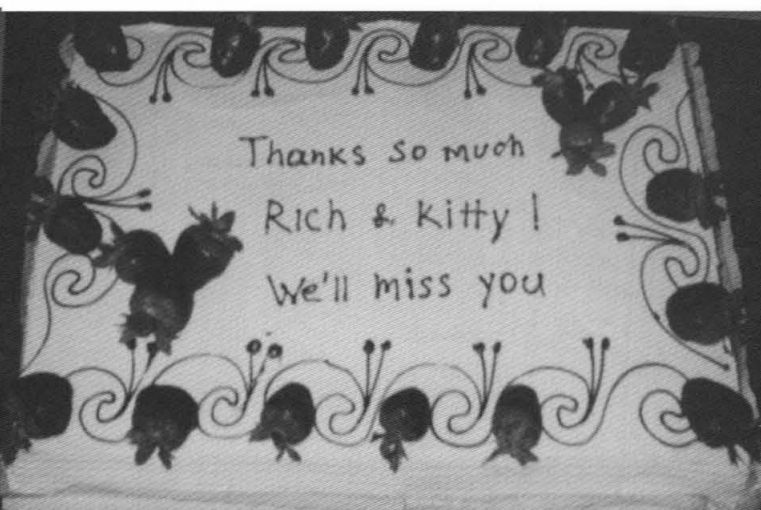 Thanks so much
Rich & Kitty !
We'll miss you